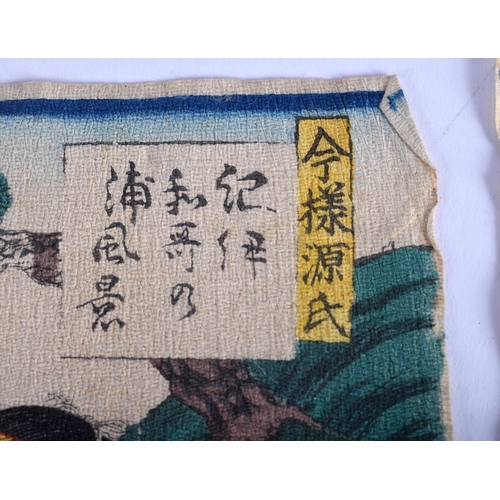 今様源氏
紀伊
和哥の
浦風景